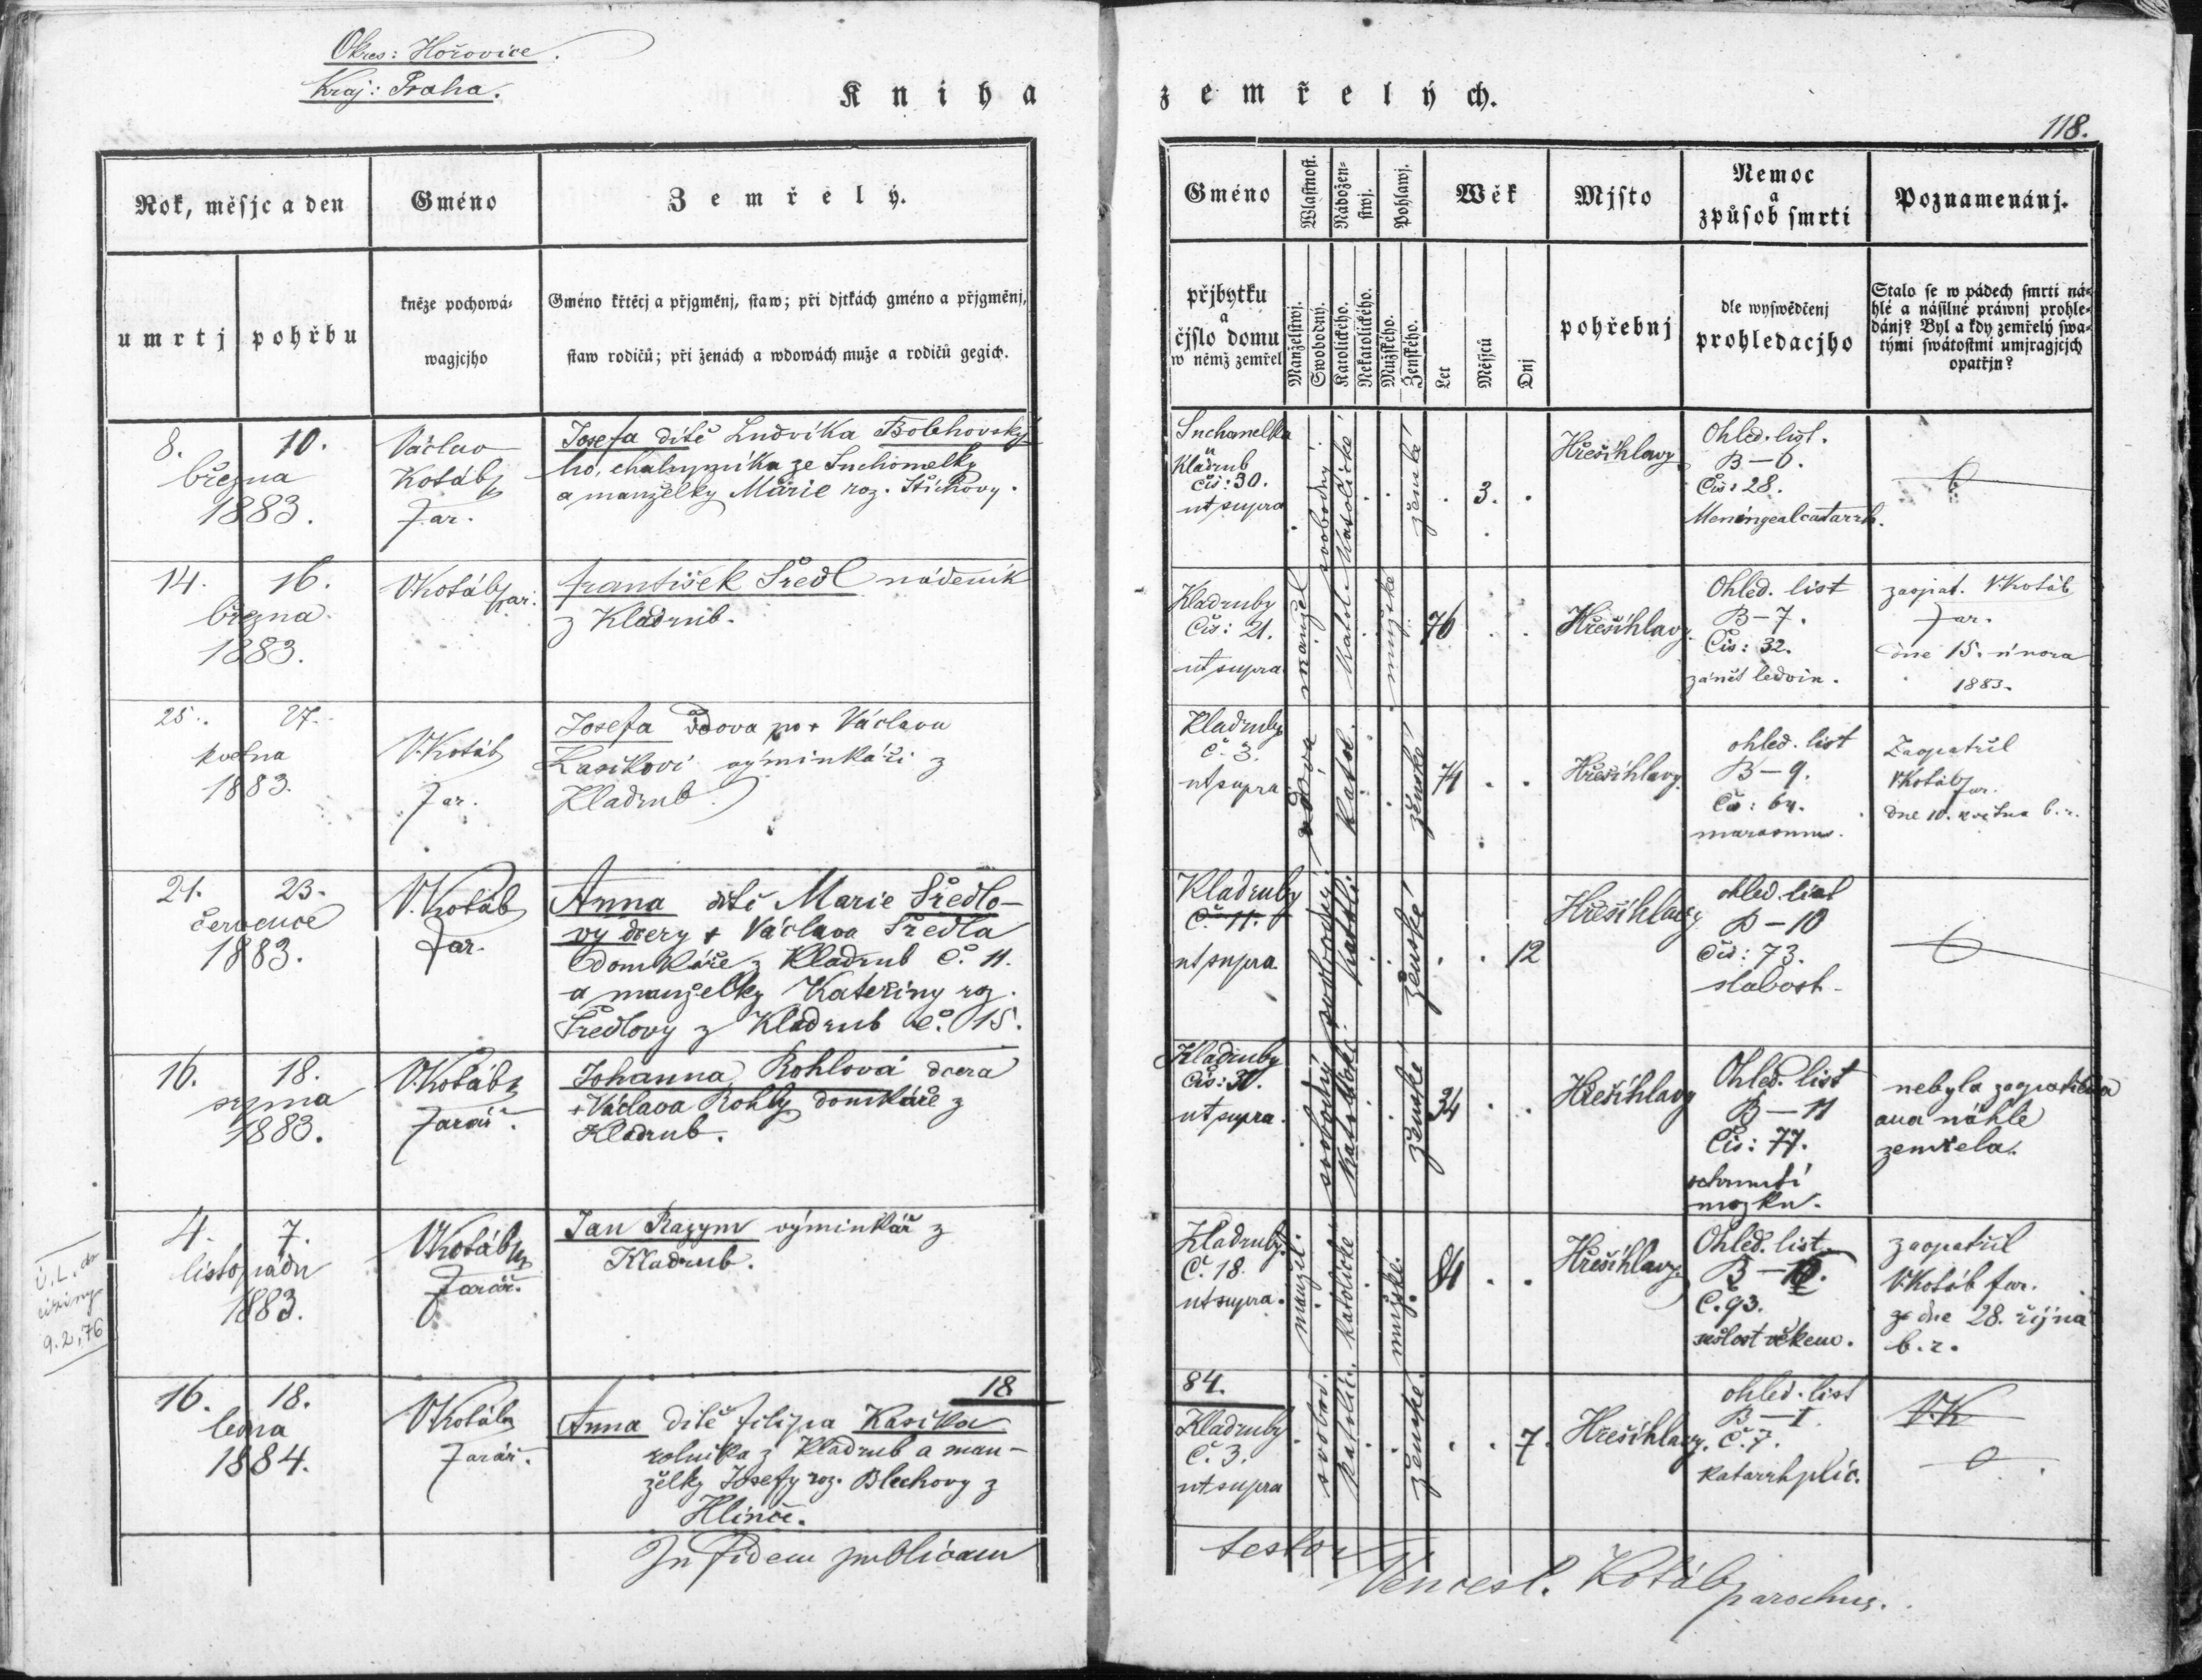 Okres: Hořovice.
Kraj: Praha.
Kniha zemřelých.
118.
Rok, měsjc a den
Gméno
Zemřelý.
Gméno
Wlastnost.
Nábožen-
stwj.
Pohlawj.
Wěk
Mjsto
Nemoc
a
způsob smrti
Poznamenánj.
umrtj
pohřbu
kněze pochowá-
wagjcjho
Gméno křtěcj a přjgměnj, staw; při djtkách gméno a přjgměnj,
staw rodičů; při ženách a wdowách muže a rodičů gegich.
přjbytku
a
čjslo domu
w němž zemřel
Manželstwj.
Swobodný.
Katolického.
Nekatolického.
Mužského.
Ženského.
Let
Měsjců
Dnj
pohřebnj
dle wyswědčenj
prohledacjho
Stalo se w pádech smrti ná-
hlé a násilné práwnj prohle-
dánj? Byl a kdy zemřelý swa-
tými swátostmi umjragjcjch
opatřjn?
8. 10.
března
1883.
Václav
Kotáb
far.
Josefa dítě Ludvíka Bolehovský-
ho, chalupníka ze Suchomelky
a manželky Marie roz. Štichovy.
Suchomelka
u
Kladrub
čís: 30.
ut supra
svobodný
Katolické
ženské
3.
Hřešihlavy
Ohled. list.
B-6.
Čís: 28.
Meningealcatarrh.
14. 16.
března
1883.
VKotáb far.
František Šredl nádeník
z Kladrub.
Kladruby
Čís: 21.
ut supra
manžel
Katol.
mužské
76
Hřešihlavy.
Ohled. list
B-7.
Čís: 32.
zánět ledvin.
zaopat. V.Kotáb
far.
dne 15. února
1883.
25. 27.
května
1883.
V.Kotáb
far.
Josefa vdova po + Václavu
Kasíkovi výminkáři z
Kladrub.
Kladruby
č. 3.
ut supra
vdova
Katol.
ženské
74
Hřešihlavy.
ohled. list
B-9.
Čís: 64.
marasmus.
Zaopatřil
VKotáb far.
dne 10. května b.r.
21. 23.
července
1883.
V.Kotáb
far.
Anna dítě Marie Šredlo-
vy dcery + Václava Šredla
domkáře z Kladrub č. 11.
a manželky Kateřiny roz.
Šredlovy z Kladrub č. 15.
Kladruby
č. 11.
ut supra
svobodný
katol.
ženské
12
Hřešihlavy
ohled. list
B-10
Čís: 73.
slabost.
16. 18.
srpna
1883.
V.Kotáb
farář.
Johanna Rohlová dcera
+ Václava Rohly domkáře z
Kladrub.
Kladruby
čís: 30.
ut supra.
svobodný
Katolické
ženské
34
Hřešihlavy
Ohled. list
B-11
Čís: 77.
ochrnutí
mozku.
nebyla zaopatřena
ana náhle
zemřela.
4. 7.
listopadu
1883.
VKotáb
farář.
Jan Razym výminkář z
Kladrub.
Kladruby
Č. 18.
ut supra.
manžel.
katolické
mužské.
84
Hřešihlavy.
Ohled. list
B-12.
Č. 93.
sešlost věkem.
zaopatřil
VKotáb far.
dne 28. října
b.r.
9.2.76
18 84.
16. 18.
ledna
1884.
VKotáb
farář.
Anna dítě Filipa Kasíka
rolníka z Kladrub a man-
želky Josefy roz. Blechovy z
Hlince.
Kladruby
č. 3.
ut supra
svobod.
katolic.
ženské.
7.
Hřešihlavy.
ohled. list
B-1.
Č. 7.
Katarrh plic.
VK
In fidem publicam
testor
Vencesl. Kotáb
parochus.